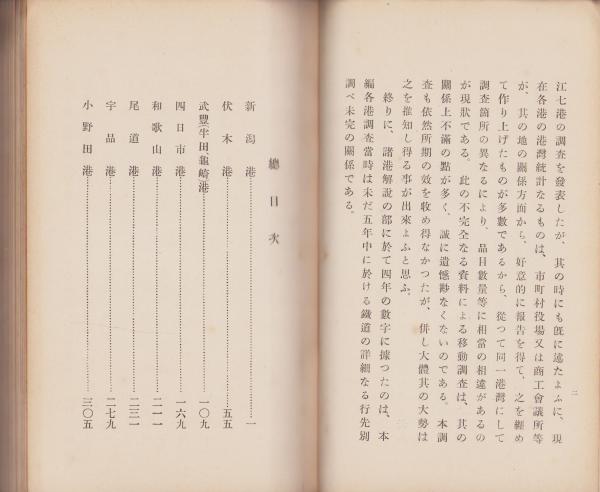 二
江七港の調査を發表したが、其の時にも既に述たよふに、現
在各港の港灣統計なるものは、市町村役場又は商工會議所等
が、其の地の關係方面から、好意的に報告を得て、之を纏め
て作り上げたものが多數であるから、從つて同一港灣にして
調査箇所の異なるにより、品目數量等に相當の相違があるの
が現狀である。此の不完全なる資料による移動調査は、其の
關係上不滿の點が多く、誠に遺憾尠なくないのである。本調
査も依然所期の效を收め得なかつたが、併し大體其の大勢は
之を推知し得る事が出來よふと思ふ。
終りに、諸港解說の部に於て四年の數字に據つたのは、本
編各港調査當時は未だ五年中に於ける鐵道の詳細なる行先別
調べ未完の關係である。
總目次
新潟港…………一
伏木港…………五五
武豐半田龜崎港…………一〇九
四日市港…………一六九
和歌山港…………二一一
尾道港…………二三一
宇品港…………二七九
小野田港…………三〇五